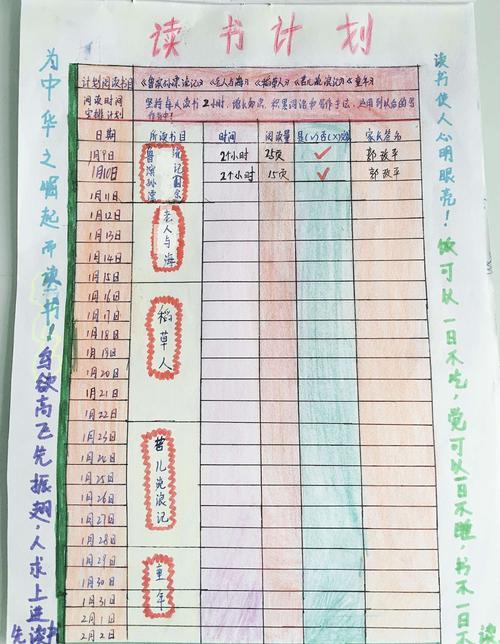 读书计划
为中华之崛起而读书！鸟欲高飞先振翅，人求上进先读书
计划阅读书目 《鲁滨孙漂流记》《老人与海》《稻草人》《昔儿流浪记》《童年》
阅读时间安排计划 坚持每人读书2小时，增长知识，积累词语和写作手法，运用到以后的写作中！
日期 所读书目 时间 阅读量 是(√)否(×)完成 家长签名
鲁滨孙漂流记
1月9日 2个小时 25页 √ 郭改平
1月10日 2个小时 15页 √ 郭改平
1月11日
1月12日
老人与海
1月13日
1月14日
1月15日
1月16日
1月17日
稻草人
1月18日
1月19日
1月20日
1月21日
1月22日
1月23日
1月24日
苦儿流浪记
1月25日
1月26日
1月27日
1月28日
1月29日
童年
1月30日
1月31日
2月1日
2月2日
读书使人心明眼亮！饭可以一日不吃，觉可以一日不睡，书不一日不读